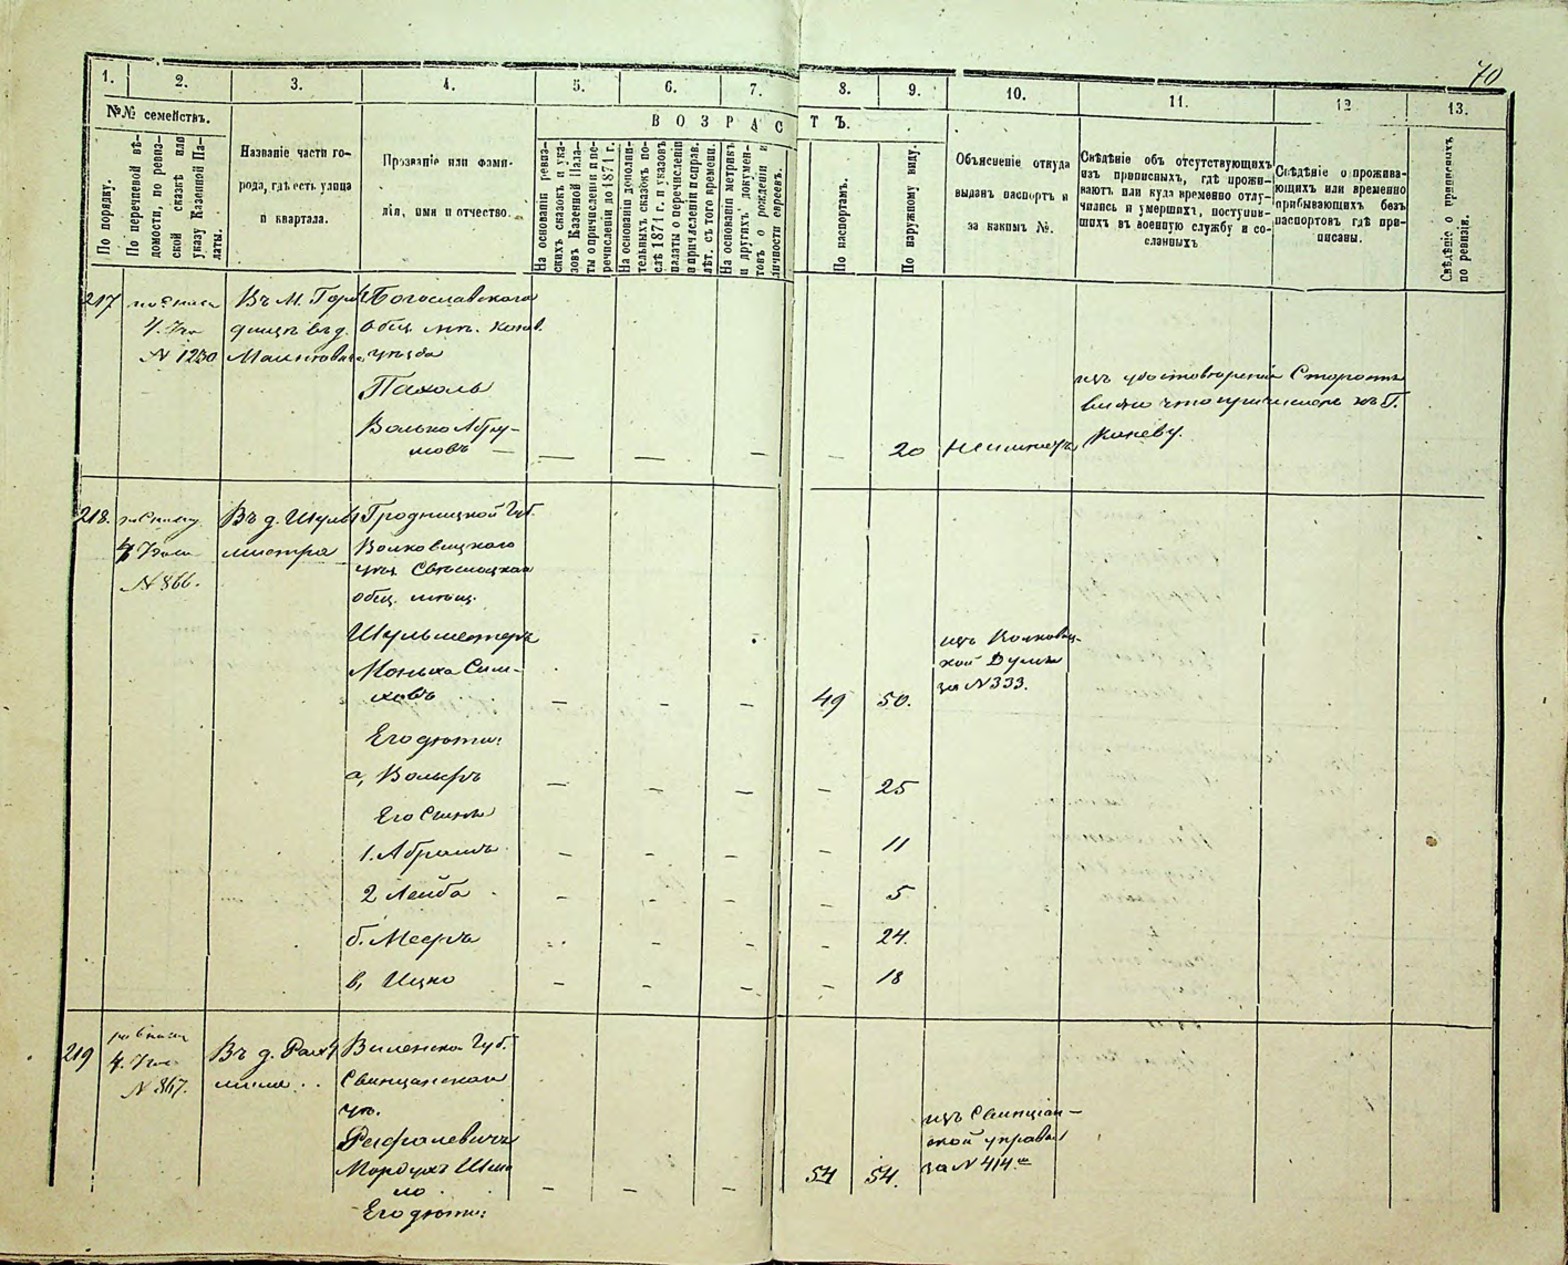 70
1. 2. 3. 4. 5. 6. 7. 8. 9. 10. 11. 12 13.
№№ семействъ.
ВОЗРАСТЪ.
По порядку.
По перечневой вѣ-
домости, по ревиз-
ской сказкѣ или
указу Казенной Па-
латы.
Названіе части го-
рода, гдѣ есть улица
и квартала.
Прозваніе или фами-
лія, имя и отчество.
На основаніи ревиз-
скихъ сказокъ и ука-
зовъ Казенной Пала-
ты о причисленіи и пе-
речисленіи до 1871 г.
На основаніи дополни-
тельныхъ сказокъ по-
слѣ 1871 г. и указовъ
палаты о перечисленіи
и причисленіи и справ.
лѣт. съ того времени.
На основаніи метрикъ
и другихъ докумен-
товъ о рожденіи и
личности евреевъ.
По паспортамъ.
По наружному виду.
Объясненіе откуда
выданъ паспортъ и
за какимъ №.
Свѣдѣніе объ отсутствующихъ
изъ приписныхъ, гдѣ прожи-
ваютъ или куда временно отлу-
чились и умершихъ, поступив-
шихъ въ военную службу и со-
сланныхъ
Свѣдѣніе о прожива-
ющихъ или временно
прибывающихъ безъ
паспортовъ гдѣ при-
писаны.
Свѣдѣніе о приписныхъ
по ревизіи.
217
N 1230
Въ М. Горо-
дищѣ въ д.
Богославскаго
общ. мѣ. Канев.
уѣзда
Пахоль
Волько Абру-
мовъ — — — — — 20
Каневу.
218.
N 866.
Въ д. Шуль-
мистра
Гродницкой Губ.
Волковицкаго
уѣз Свѣслоцкаго
общ. мѣщ.
Шульместеръ
Монька Сим-
ховъ — — — 49 50.
изъ Волковиц-
кой Думы
за N 333.
Его дѣти:
а, Вольфъ — — — — 25
Его Сыны
1. Абрамъ — — — — 11
2 Лейба — — — — 5
б. Мееръ — — — 24.
в, Ицко — — — — 18
219
N 867.
Въ д. Рах-
Виленской Губ.
Свинцянскаго
уѣ.
Рафалевичъ
Мордухъ Шмо
ло — — — 54 54.
изъ Свинціан-
ской управы
за N 414.
Его дѣти: